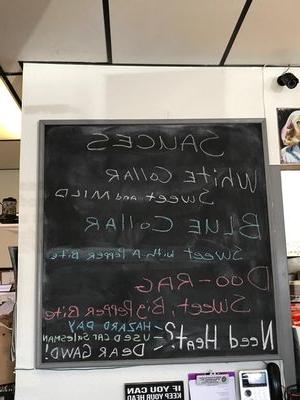 SAUCES
White Collar
Sweet and MILD
Blue Collar
Sweet with A Pepper Bite
Doo-RAG
Sweet, Big Pepper Bite
Need Heat?
HAZARD PAY
USED CAR SALESMAN
DEAR GAWD!
IF YOU CAN
KEEP YOUR HEAD